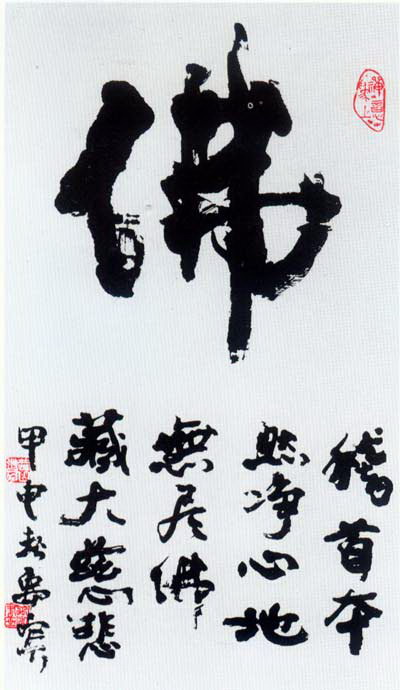 佛
稽首本
然净心地
無尽佛
藏大慈悲
甲申